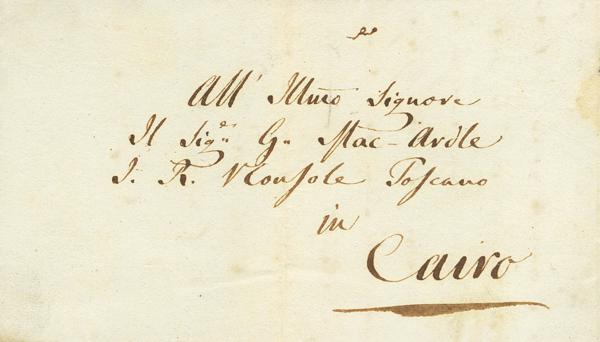 All' Illmo Signore
Il Sigre G. Mac-Ardle
I. R. VConsole Toscano
in
Cairo